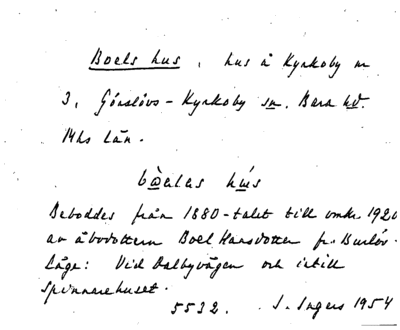 Boels hus, hus å Kyrkoby nr
3, Görslövs-Kyrkoby sn. Bara hd.
Mhs län.
bòelas hús
Beboddes från 1880-talet till omkr. 1920
av åbodottern Boel Hansdotter fr. Burlöv.
Läge: Vid Dalbyvägen och intill
Spinnarehuset.
5532. I. Ingers 1954